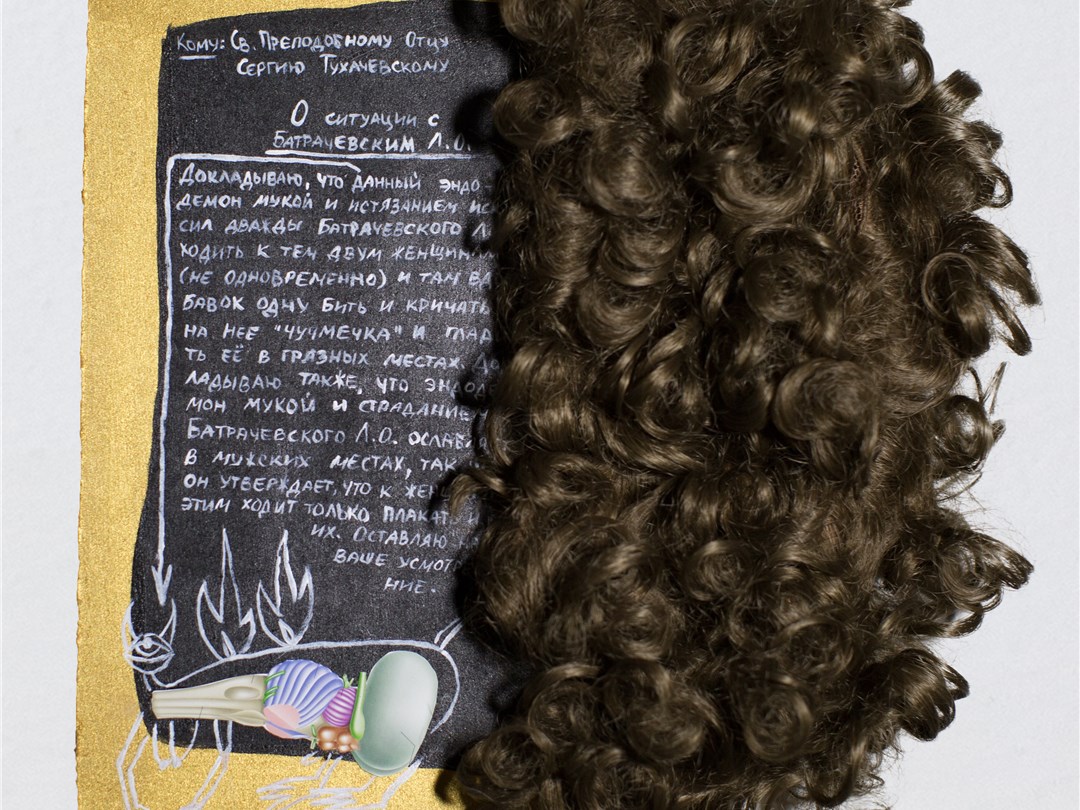 Кому: Св. Преподобному Отцу
Сергию Тухачевскому
О ситуации с
Батрачевским Л.О.
Докладываю, что данный эндо-
демон мукой и истязанием ис
сил дважды Батрачевского Л
ходить к тем двум женщин
(не одновременно) и там в
бавок одну бить и кричать
на нее "чучмечка" и глад
ть её в грязных местах. До
ладываю также, что эндоде
мон мукой и страдание
Батрачевского Л.О. ослав
в мужских местах, так
он утверждает, что к жен
этим ходит только плакать и
их. Оставляю
ваше усмотр
ние.